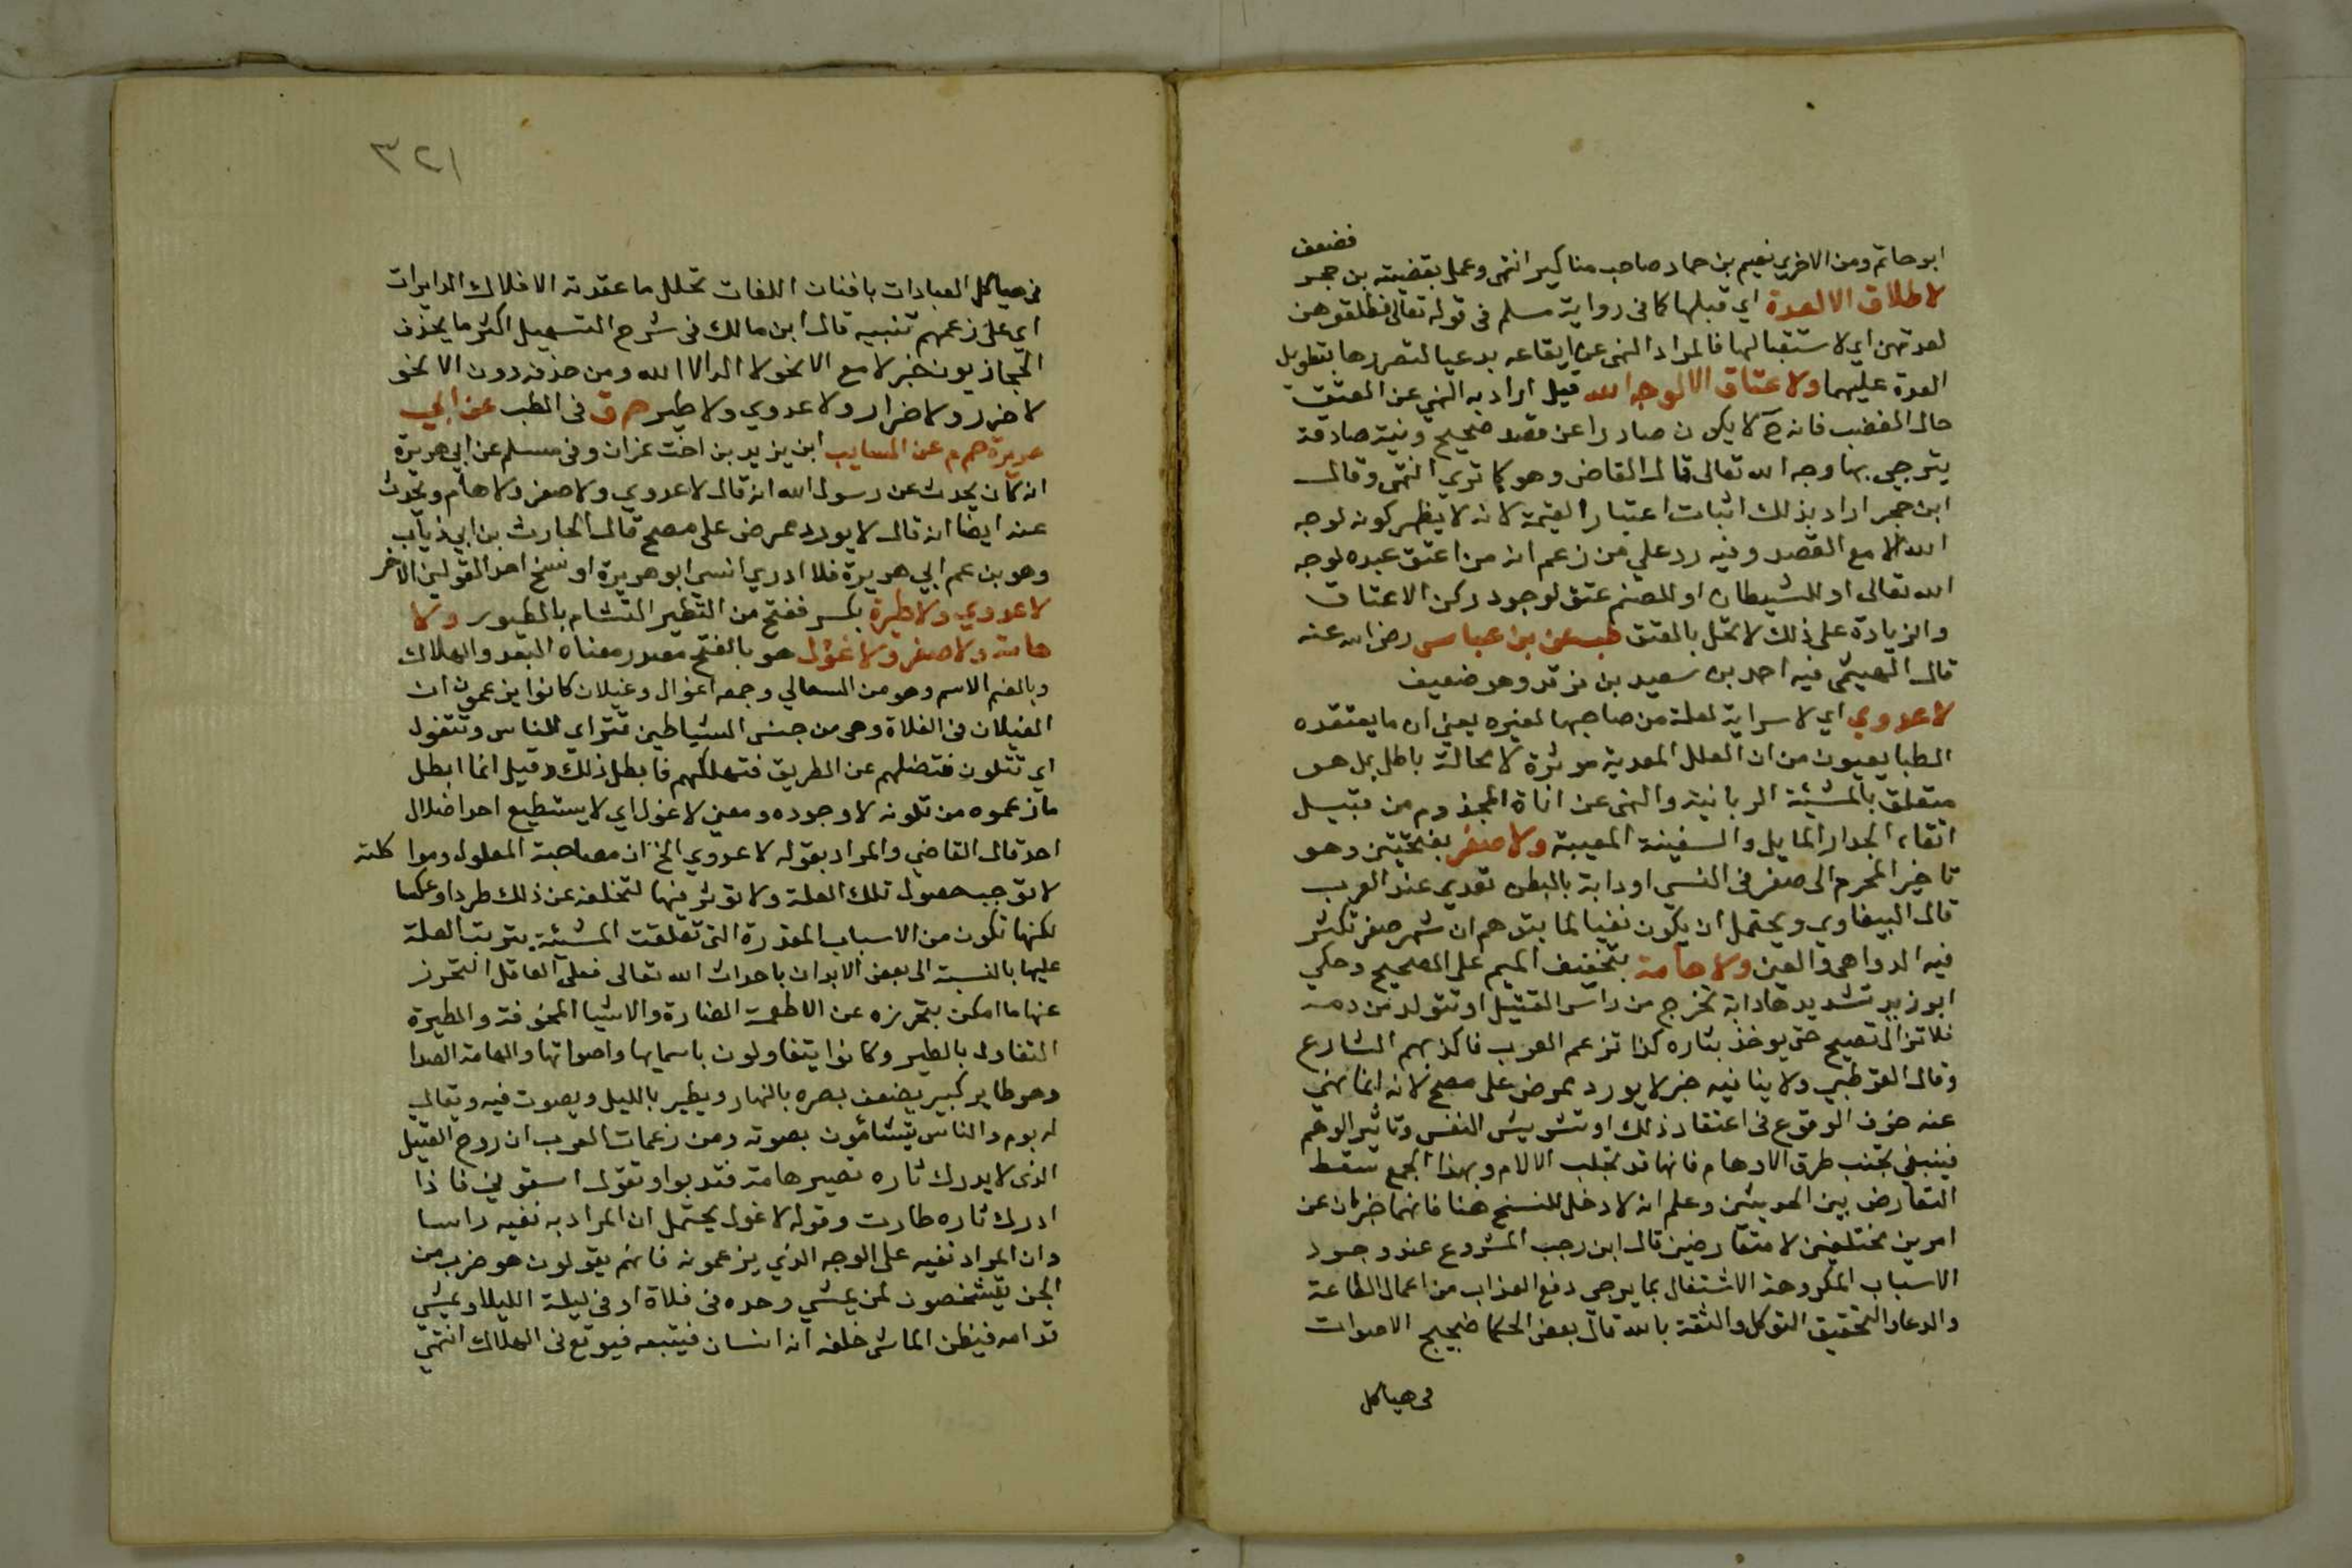 ابو حاتم ومن الاخرين نعيم بن حماد صاحب مناكير انتهى وعمل بقضيته بن حجر
فضعف
لا طلاق الا لعدة اي قبلها كما في رواية مسلم في قوله تعالى فطلقوهن
لعدتهن اي لاستقبالها فالمراد النهى عن ايقاعه بدعيا لتضررها بتطويل
العدة عليهما ولا عتاق الا لوجه الله قيل اراد به النهي عن العتق
حال الغضب فانه ح لا يكون صادرا عن قصد صحيح ونية صادقة
يترجى بها وجه الله تعالى قال القاضي وهو كما تري انتهى وقال
ابن حجر اراد بذلك اثبات اعتبار النية لانه لا يظهر كونه لوجه
الله الا مع القصد وفيه رد علي من زعم ان من اعتق عبده لوجه
الله تعالى او للشيطان او للصنم عتق لوجود ركن الاعتاق
والزيادة على ذلك لا تخل بالعتق طب عن بن عباس رضي الله عنه
قال الهيثمى فيه احمد بن سعيد بن فرقد وهو ضعيف
لا عدوي اي لا سراية لعلة من صاحبها لغيره يعني ان ما يعتقده
الطبايعيون من ان العلل المعدية موثرة لا محالة باطل بل هو
متعلق بالمشيئة الربانية والنهى عن اناة المجذوم من قبيل
اتقاء الجدار المايل والسفينة المعيبة ولا صفر بفتحتين وهو
تاخير المحرم الى صفر في النسي او دابة بالبطن تعدي عند العرب
قال البيضاوي ويحتمل ان يكون نفيا لما يتوهم ان شهر صفر تكثر
فيه الدواهى والفتن ولا هامة بتخفيف الميم على الصحيح وحكي
ابو زيد تشديدها دابة تخرج من راس القتيل او تتولد من دمه
فلا تزال تصيح حتى يوخذ بثاره كذا تزعم العرب فاكذبهم الشارع
وقال القرطبي ولا ينافيه خبر لا يورد ممرض على مصح لانه انما نهي
عنه خوف الوقوع في اعتقاد ذلك او تشويش النفس وتاثير الوهم
فينبغي تجنب طرق الاوهام فانها قد تجلب الالام وبهذا الجمع سقط
التعارض بين الحديثين وعلم انه لا دخل للنسخ هنا فانهما خبران عن
امرين مختلفين لا متعارضين قال ابن رجب المشروع عند وجود
الاسباب المكروهة الاشتغال بما يرجى دفع العذاب من اعمال الطاعة
والدعاء والتحقيق التوكل والثقة بالله قال بعض الحكما ضجيج الاصوات
في هياكل
٣٢١
في هياكل العبادات بافنان اللغات تحلل ما عقدته الافلاك الدايرات
اي على زعمهم تنبيه قال ابن مالك في شرح التسهيل اكثر ما يحذف
الحجازيون خبر لا مع الا نحو لا اله الا الله ومن حذفه دون الا نحو
لا ضرر ولا ضرار ولا عدوي ولا طير حم ق في الطب عن ابي
هريرة حم م عن السايب ابن يزيد بن اخت نمران وفي مسلم عن ابي هريرة
انه كان يحدث عن رسول الله انه قال لا عدوي ولا صفر ولا هام ويحدث
عنه ايضا انه قال لا يورد ممرض على مصح قال الحارث بن ابي ذياب
وهو بن عم ابي هريرة فلا ادري انسي ابو هريرة او نسخ احد القولين الاخر
لا عدوي ولا طيرة بكسر ففتح من التطير التشام بالطيور ولا
هامة ولا صفر ولا غول هو بالفتح مصدر معناه البعد والهلاك
وبالضم الاسم وهو من السعالي وجمعه اغوال وغيلان كانوا يزعمون ان
الغيلان في الفلاة وهى من جنس الشياطين تتراي للناس وتتغول
اي تتلون فتضلهم عن الطريق فتهلكهم فابطل ذلك وقيل انما ابطل
ما زعموه من تلونه لا وجوده ومعني لا غول اي لا يستطيع احد اضلال
احد قال القاضي والمراد بقوله لا عدوي الخ ان مصاحبة المعلول ومواكلته
لا توجب حصول تلك العلة ولا توثر فيها لتخلفه عن ذلك طردا وعكسا
لكنها تكون من الاسباب المقدرة التى تعلقت المشيئة بترتب العلة
عليها بالنسبة الى بعض الابدان باحداث الله تعالى فعلى العاقل التحرز
عنها ما امكن بتحرزه عن الاطعمة الضارة والاشيا المخوفة والطيرة
التفاول بالطير وكانوا يتفاولون باسمايها واصواتها والهامة الصدا
وهو طاير كبير يضعف بصره بالنهار ويطير بالليل ويصوت فيه ويقال
له بوم والناس يتشائمون بصوته ومن زعمات العرب ان روح القتيل
الذى لا يدرك ثاره تصير هامة فتدبوا وتقول اسقوني فاذا
ادرك ثاره طارت وقوله لا غول يحتمل ان المراد به نفيه راسا
وان المراد نفيه على الوجه الذي يزعمونه فانهم يقولون هو ضرب من
الجن يتشخصون لمن يمشي وحده في فلاة او في ليلة الليلا ويمشي
قدامه فيظن الماشى خلفه انه انسان فيتبعه فيوقع في الهلاك انتهي